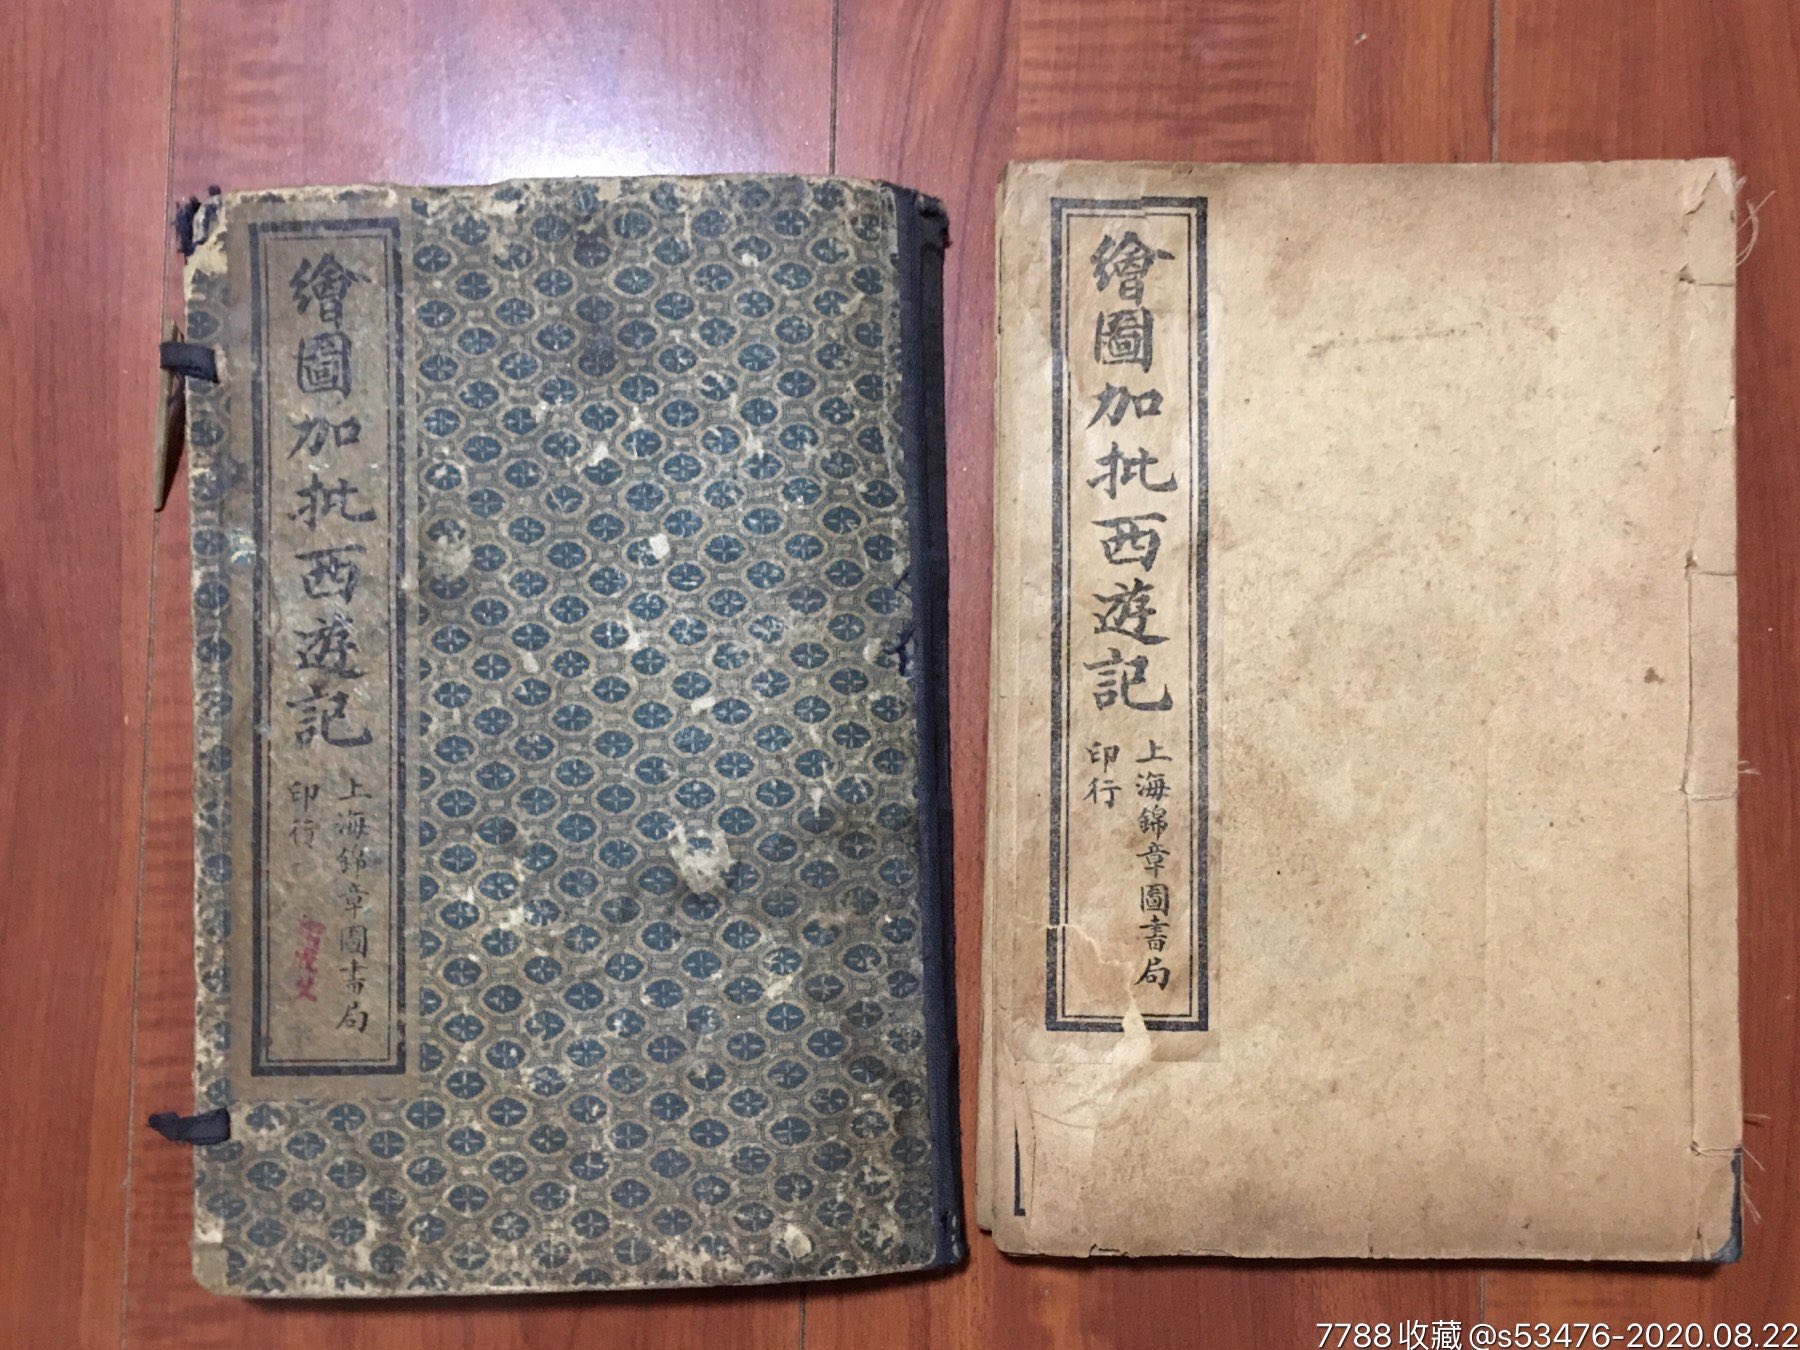 繪圖加批西遊記
上海錦章圖書局
印行
繪圖加批西遊記
上海錦章圖書局
印行
7788收藏@s53476-2020.08.22